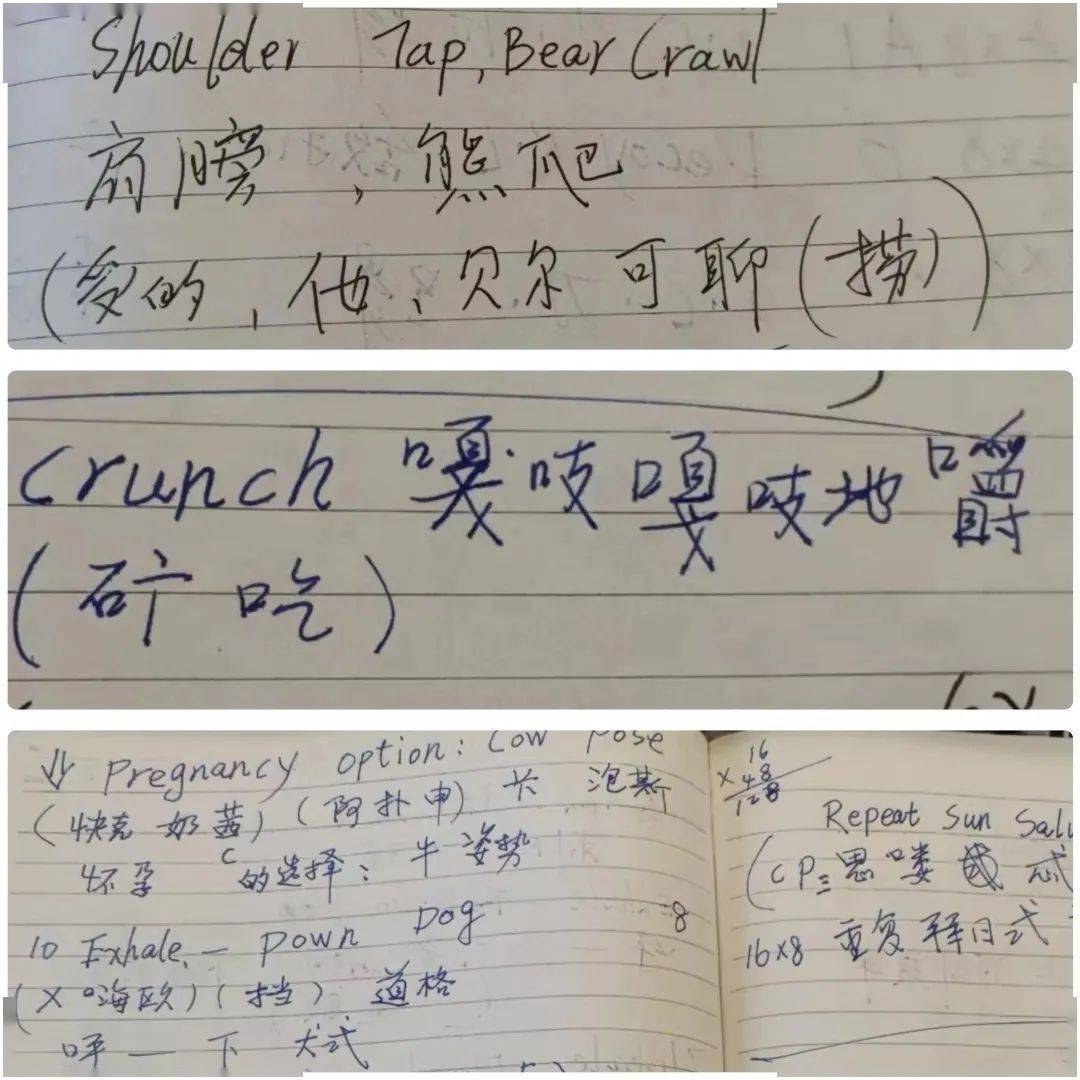 Shoulder Tap, Bear Crawl
肩膀，熊爬
(受的，他，贝尔可聊(捞))
Crunch 嘎吱嘎吱地嚼
(矿吃)
Pregnancy option: Low Pose
(快克奶茜)(阿扑申) 卡 泡斯
怀孕 C 的选择：牛姿势
10 Exhale — Down Dog =8
(X 海欧)(挡) 道格
呼 — 下 犬式
16
×48
128
Repeat Sun Salu
(CP 思喽
16×8 重复拜日式